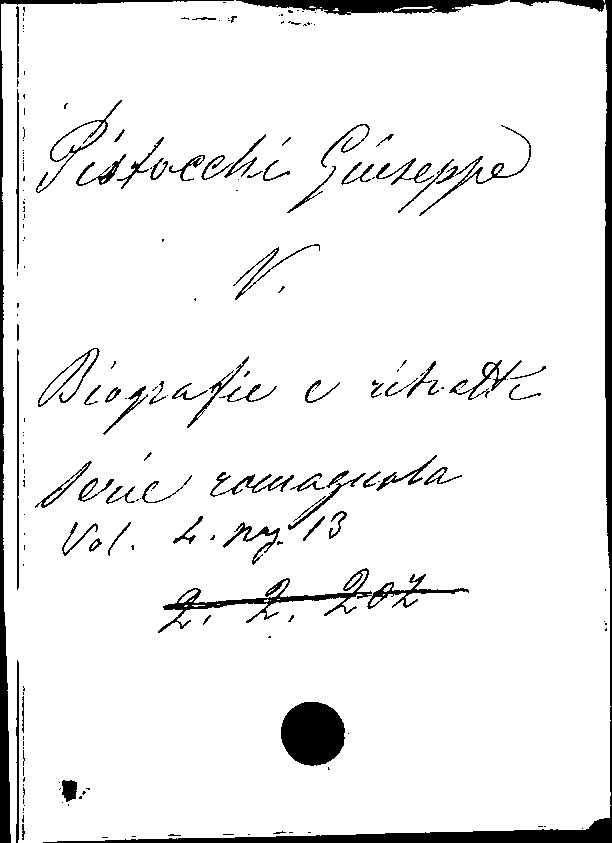 Pistocchi Giuseppe
V.
Biografie e ritratti
serie romagnola
Vol. 4. pag. 13
2. 2. 202